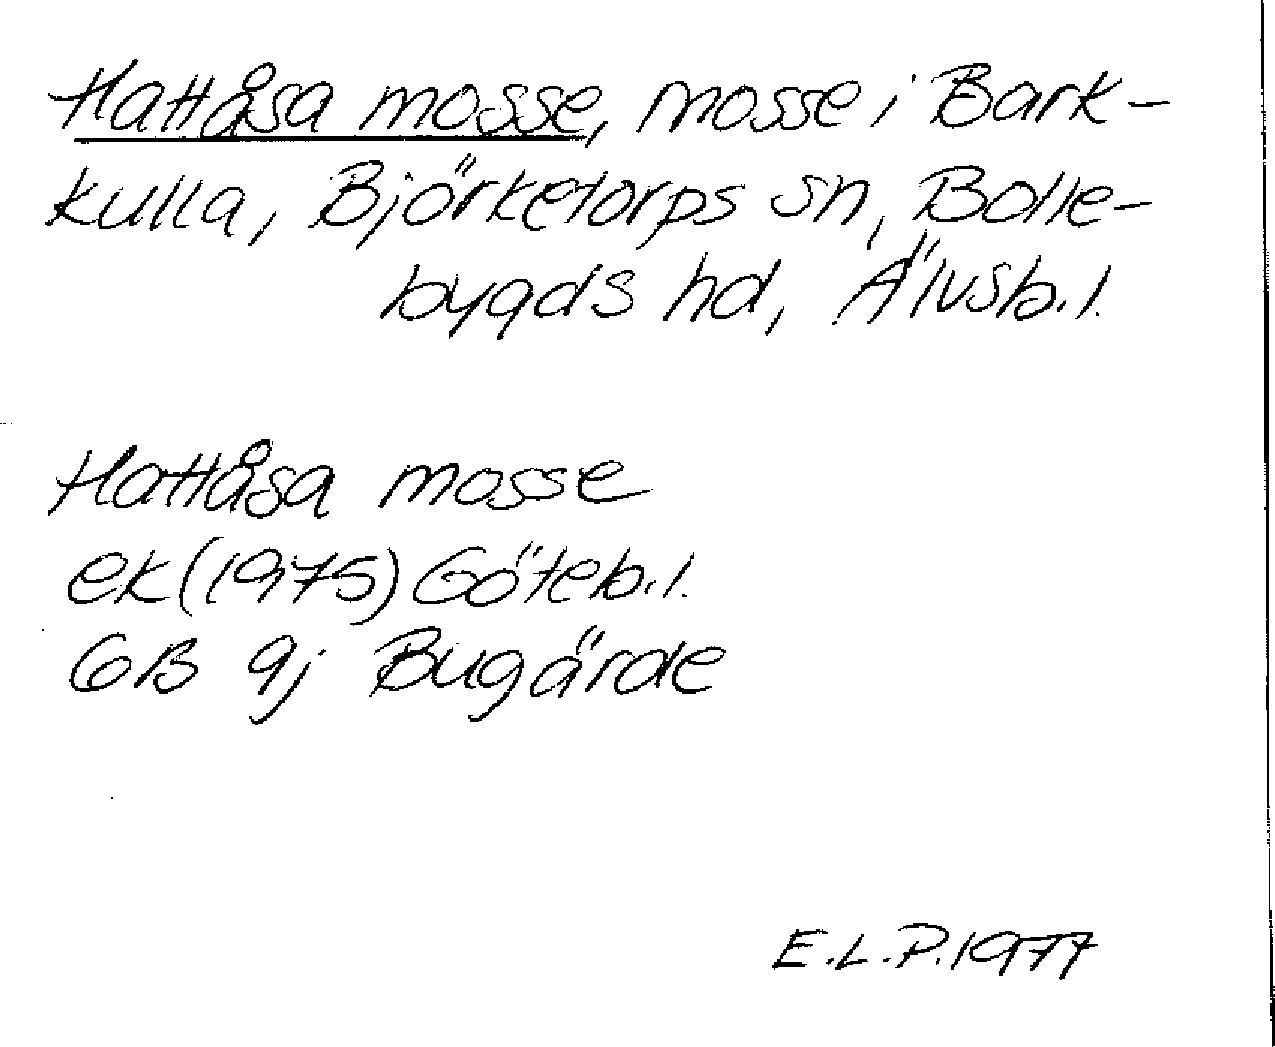 Hattåsa mosse, mosse i Bark-
kulla, Björketorps sn, Bolle-
bygds hd, Älvsb.l.
Hattåsa mosse
ek (1975) Göteb.l.
6B 9j Bugärde
E.L.P. 1977